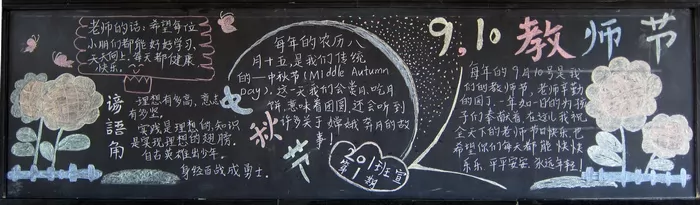 老师的话：希望每位
小朋们都能好好学习，
天天向上，每天都健康
快乐。
谚語角
理想有多高，意志
有多坚。
实践是理想的，知识
是实现理想的翅膀。
自古英雄出少年。
身经百战成勇士。
每年的农历八
月十五是我们传统
的—中秋节(Middle Autumn
Day)，这一天我们会赏月、吃月
饼，意味着团圆，还会听到
许多关于嫦娥奔月的故
事！
中秋节
201班宣
第1期
9.10教师节
每年的9月10号是我
们的教师节，老师辛勤
的园丁，一年如一日的为孩
子们奉献着，在这儿我祝
全天下的老师节日快乐，也
希望你们每天都能快快
乐乐，平平安安，永远年轻！